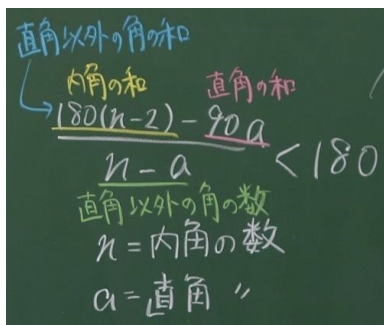 直角以外の角の和
内角の和 直角の和
180(n-2) - 90a
n - a
< 180
直角以外の角の数
n = 内角の数
a = 直角 〃